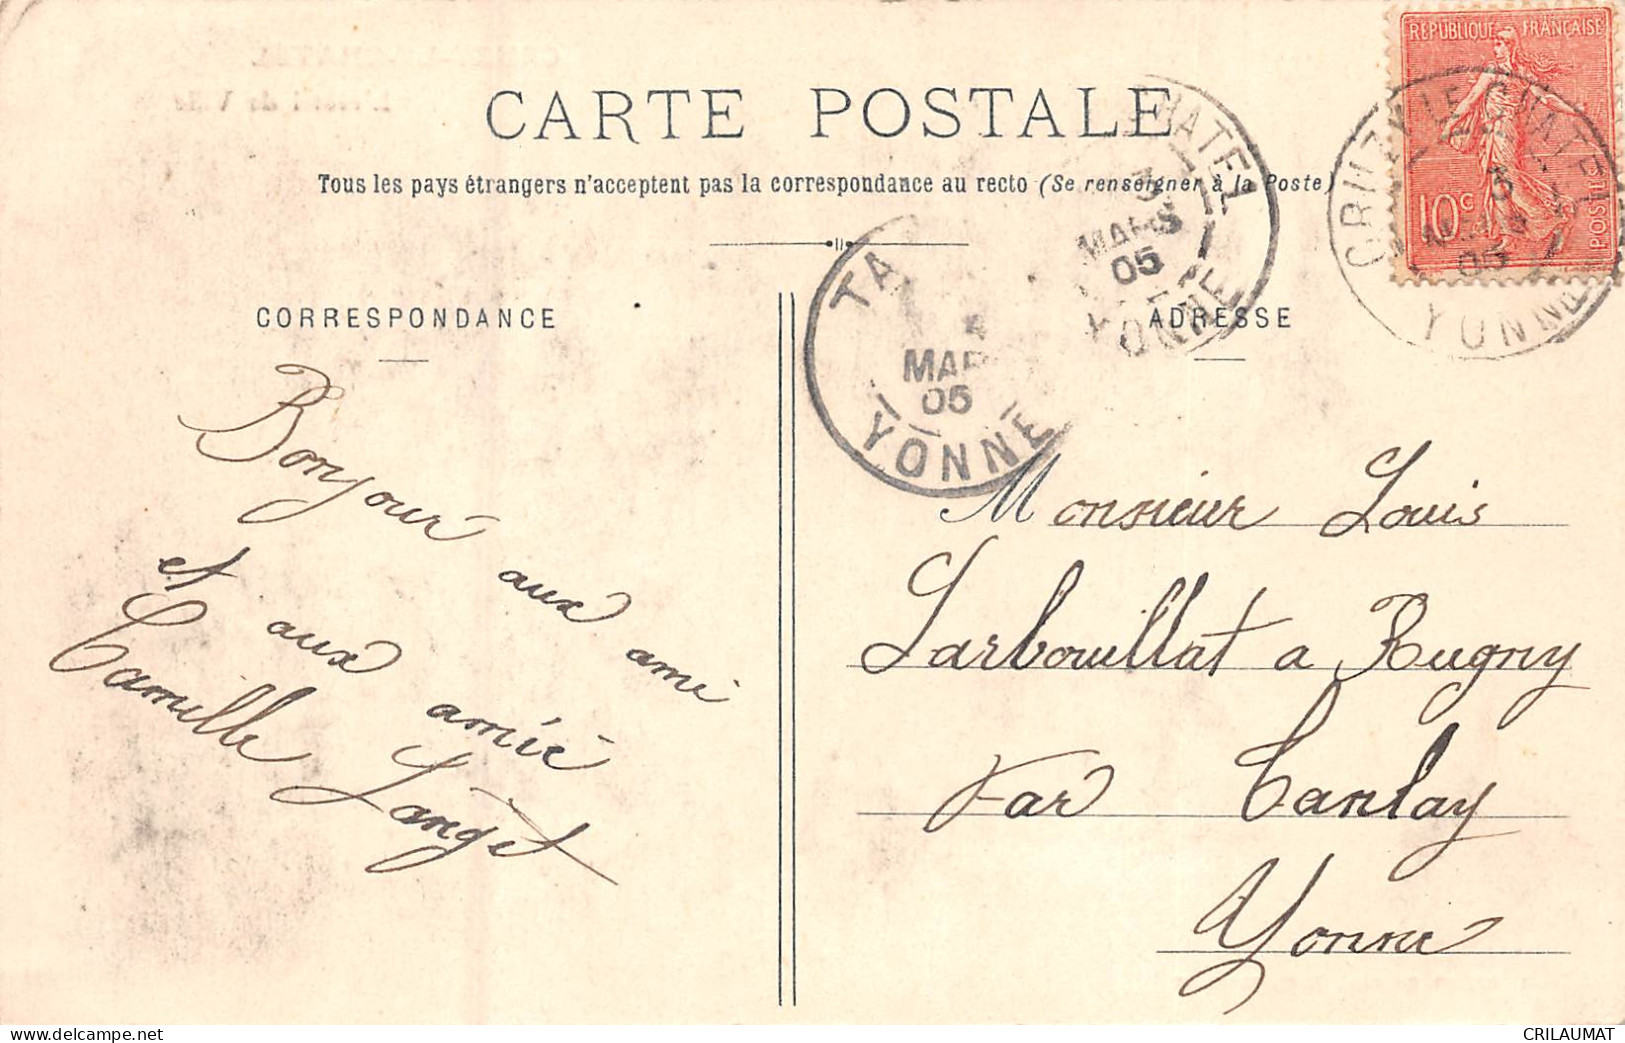 RÉPUBLIQUE FRANÇAISE
10c POSTES
CARTE POSTALE
Tous les pays étrangers n'acceptent pas la correspondance au recto (Se renseigner à la Poste)
CRUZY LE CHATEL
5
MARS
05
YONNE
CHATEL
5
MARS
05
YONNE
TA
MAR
05
YONNE
CORRESPONDANCE
ADRESSE
Bonjour aux ami
et aux amie
Camille Langet
Monsieur Louis
Larbouillat a Rugny
Par Tanlay
Yonne
CRILAUMAT